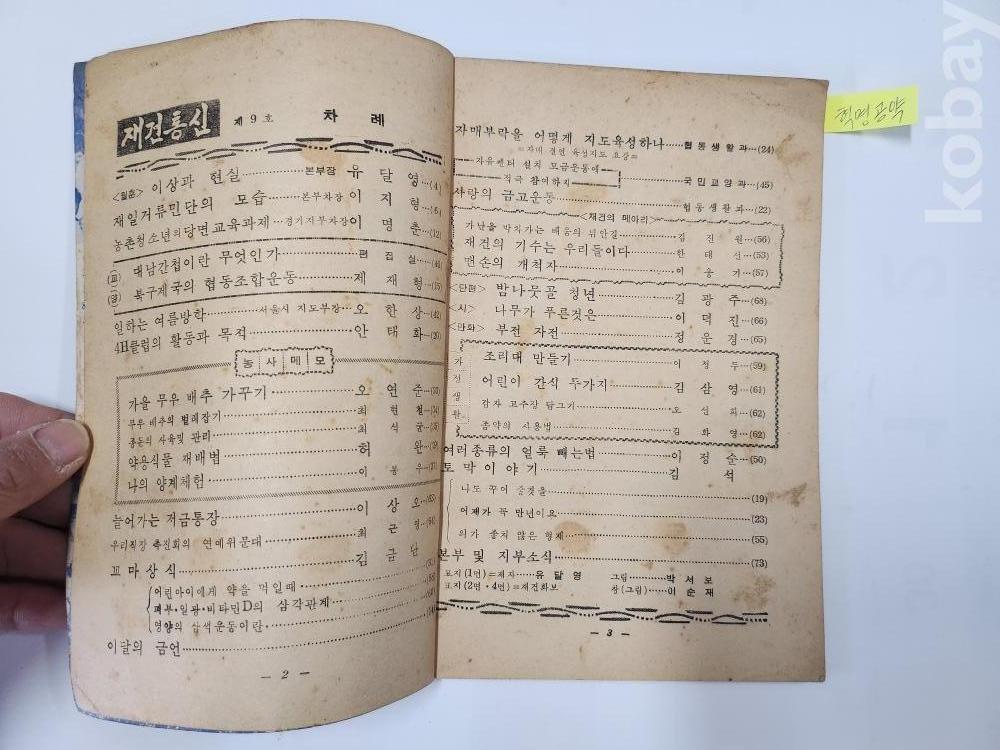 재건통신 제9호 차례
<월춘> 이상과 현실 본부장 유달영 (4)
재일거류민단의 모습 본부차장 이지형 (6)
농촌청소년의 당면교육과제 경기지부차장 이명춘 (12)
(교) 대남간첩이란 무엇인가 편집실 (46)
(양) 북구제국의 협동조합운동 제재형 (15)
일하는 여름방학 서울시 지도부장 오한상 (42)
4H클럽의 활동과 목적 안태화 (20)
농사메모
가을 무우 배추 가꾸기 오연준
무우 배추의 벌레잡기 최현철
종돈의 사육및 관리 최석균
약용식물 재배법 허완
나의 양계체험 이봉우
늘어가는 저금통장 이상오
우리직장 촉진회의 연예위문대 최근
꼬마상식 김금단
어린아이에게 약을 먹일때
피부·일광·비타민D의 삼각관계
영양의 삼색운동이란
이달의 금언
— 2 —
자매부락을 어떻게 지도육성하나 협동생활과 (24)
=자매 결연 육성지도 요강=
자유쎈터 설치 모금운동에
적극 참여하자 국민교양과 (45)
사랑의 금고운동 협동생활과 (22)
<재건의 메아리>
가난을 박차가는 배움의 뒤안길 김진원 (56)
재건의 기수는 우리들이다 한태선 (53)
맨손의 개척자 이웅기 (57)
<단편> 밤나뭇골 청년 김광주 (68)
<시> 나무가 푸른것은 이덕진 (66)
<만화> 부전 자전 정운경 (65)
가정생활
조리대 만들기 이정두 (59)
어린이 간식 두가지 김삼영 (61)
감자 고추장 담그기 오선희 (62)
좀약의 사용법 김화영 (62)
여러종류의 얼룩 빼는법 이정순 (50)
토막이야기 김석
나도 꾸어 줄것을 (19)
어제가 꼭 만년이요 (23)
의가 좋지 않은 형제 (55)
본부 및 지부소식 (73)
표지(1면)=제자 유달영 그림 박서보
표지(2면·4면)=재건화보 장(그림) 이순재
— 3 —
혁명공약
kobay